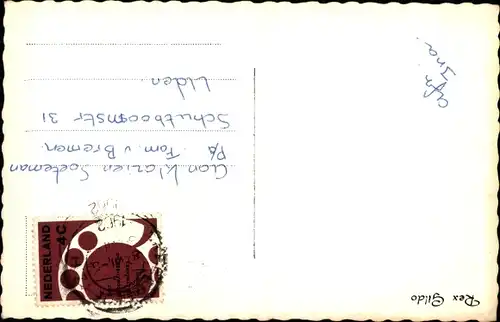 Aan Klazien Soeteman
P/a Fam. v Bremen.
Schutboomstr 31
Uden
afz
Ina
NEDERLAND
4C
1962
Rex Gildo